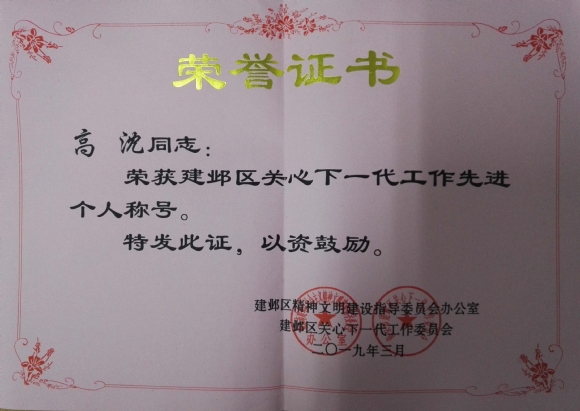 荣誉证书
高 沈同志：
荣获建邺区关心下一代工作先进
个人称号。
特发此证，以资鼓励。
建邺区精神文明建设指导委员会办公室
建邺区关心下一代工作委员会
二〇一九年三月
办公室